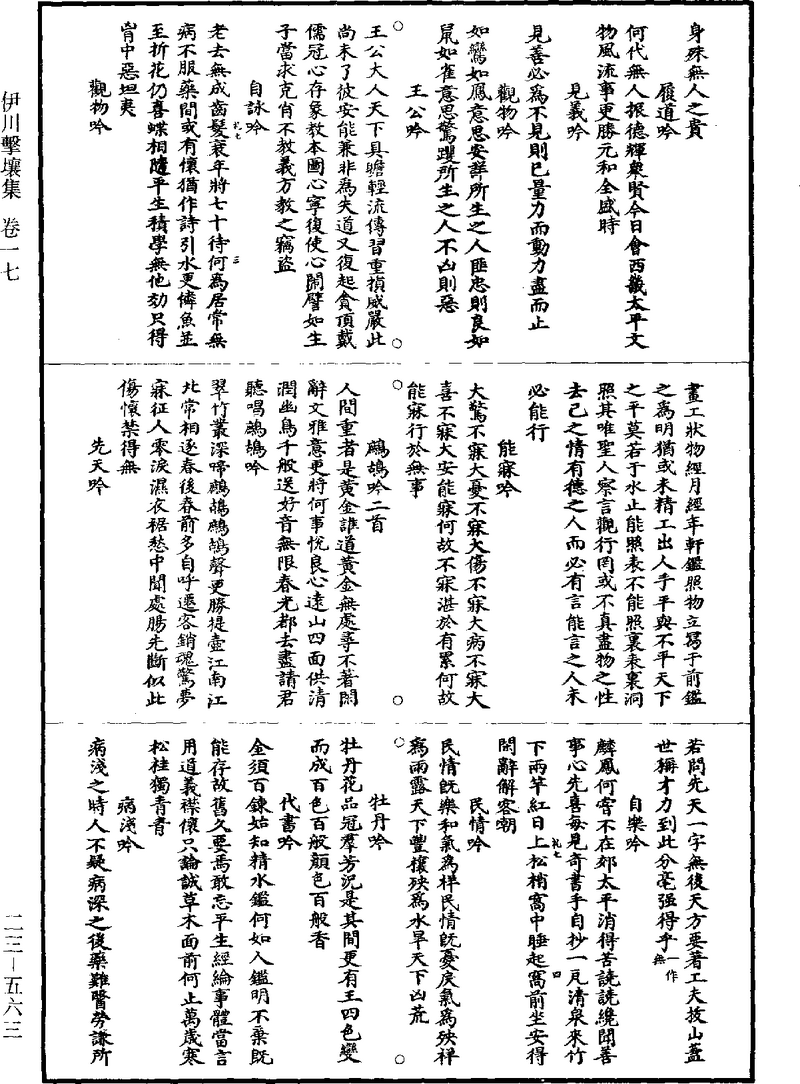 伊川擊壤集 卷一七
二三—五六三
身殊無人之貴
履道吟
何代無人振德輝衆賢今日會西畿太平文
物風流事更勝元和全盛時
見義吟
見善必為不見則已量力而動力盡而止
觀物吟
如鸞如鳳意思安詳所生之人匪忠則良如
鼠如雀意思驚躩所生之人不凶則惡
王公吟
王公大人天下具瞻輕流傳習重損威嚴此
尚未了彼安能兼非為失道又復起貪頂戴
儒冠心存象教本圖心寧復使心鬧譬如生
子當求克肖不教義方教之竊盜
自詠吟
老去無成齒髮衰年將七十待何為居常無
病不服藥間或有懷猶作詩引水更憐魚並
至折花仍喜蝶相隨平生積學無他効只得
胷中惡坦夷
觀物吟
畫工狀物經月經年軒鑑照物立寫于前鑑
之為明猶或未精工出人手平與不平天下
之平莫若于水止能照表不能照裏表裏洞
照其唯聖人察言觀行罔或不真盡物之性
去己之情有德之人而必有言能言之人未
必能行
能寐吟
大驚不寐大憂不寐大傷不寐大病不寐大
喜不寐大安能寐何故不寐湛於有累何故
能寐行於無事
鷓鴣吟二首
人間重者是黃金誰道黃金無處尋不著閑
辭文雅意更將何事悅良心遠山四面供清
潤幽鳥千般送好音無限春光都去盡請君
聽唱鷓鴣吟
翠竹叢深啼鷓鴣鷓鴣聲更勝提壺江南江
北常相逐春後春前多自呼遷客銷魂驚夢
寐征人零淚濕衣裾愁中聞處腸先斷似此
傷懷禁得無
先天吟
若問先天一字無後天方要著工夫拔山蓋
世稱才力到此分毫强得乎一作無
自樂吟
麟鳳何甞不在郊太平消得苦譊譊纔聞善
事心先喜每見奇書手自抄一瓦清泉來竹
下兩竿紅日上松梢窩中睡起窩前坐安得
閑辭解客嘲
民情吟
民情既樂和氣為祥民情既憂戾氣為殃祥
為雨露天下豐穰殃為水旱天下凶荒
牡丹吟
牡丹花品冠羣芳況是其間更有王四色變
而成百色百般顏色百般香
代書吟
金須百鍊始知精水鑑何如人鑑明不棄既
能存故舊久要焉敢忘平生經綸事體當言
用道義襟懷只論誠草木面前何止萬歲寒
松桂獨青青
病淺吟
病淺之時人不疑病深之後藥難醫勞謙所